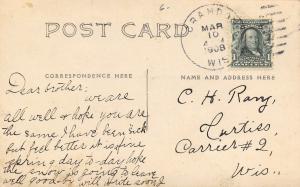 6.
POST CARD
GRAND
MAR
10
A
1908
WIS
CORRESPONDENCE HERE
NAME AND ADDRESS HERE
Dear brother;
we are
all well & hope you are
the same I have been sick
but feel better it is fine
spring day to day hope
the snow is going to leave
well good-by will write soon
C. H. Rany,
Curtiss,
Carrier #2,
Wis.,